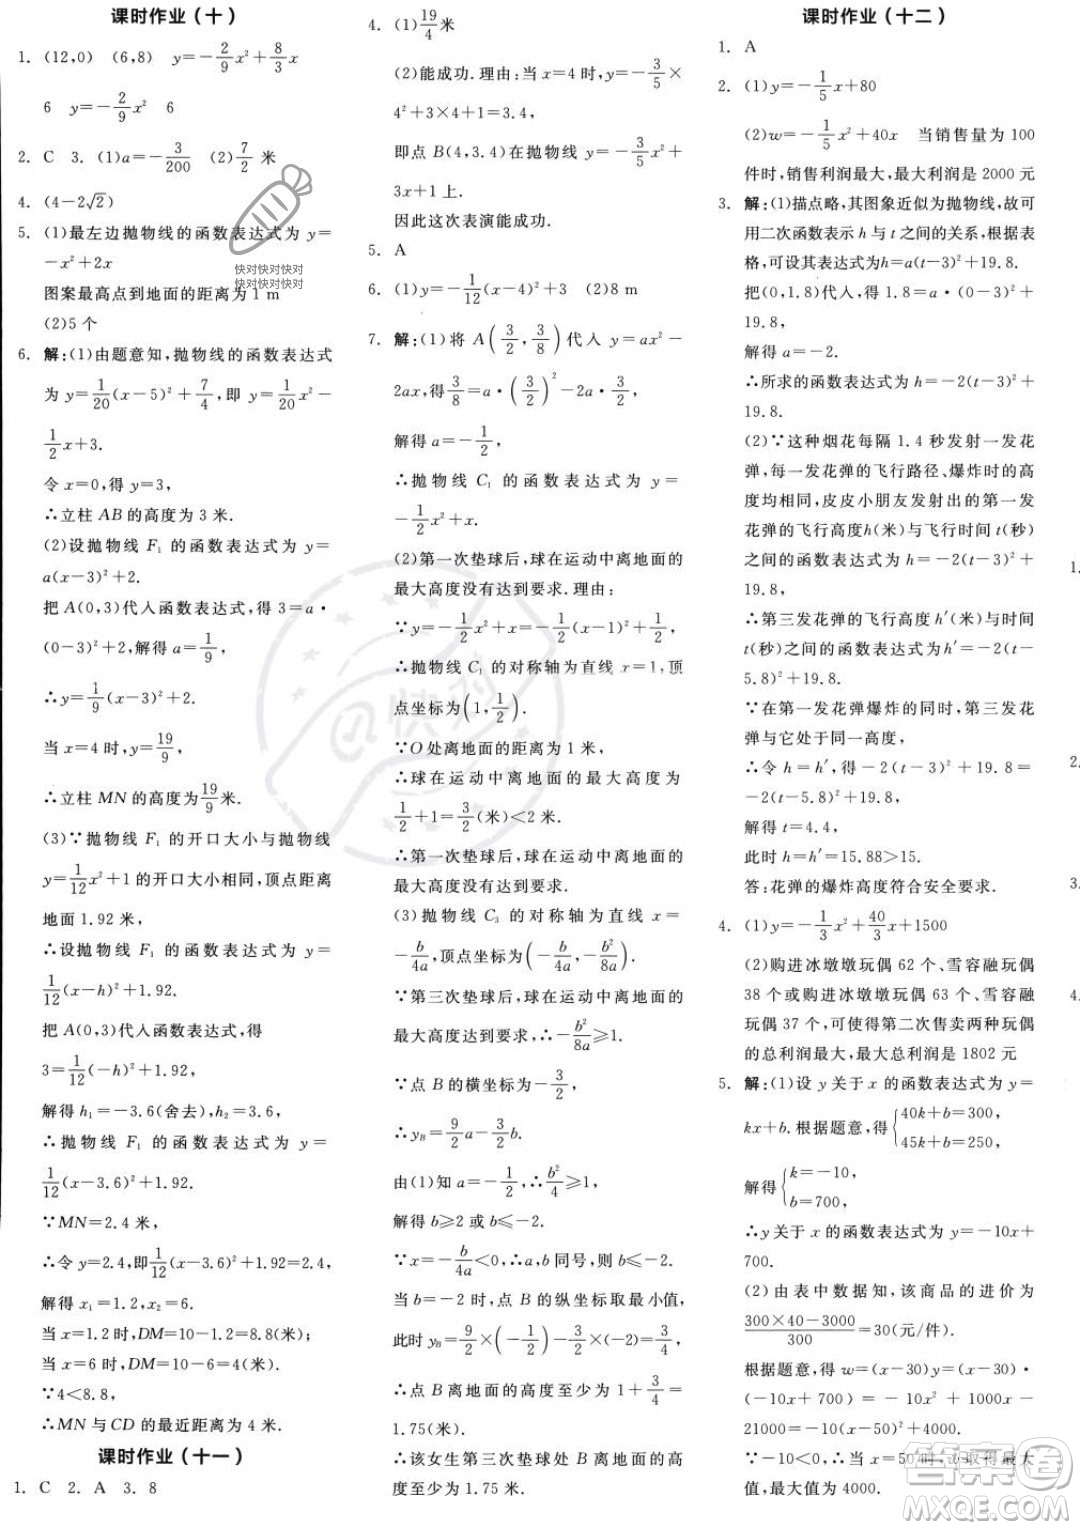 课时作业（十）
1. (12,0)　(6,8)　y=-2/9x²+8/3x
6　y=-2/9x²　6
2. C　3. (1)a=-3/200　(2)7/2 米
4. (4-2√2)
5. (1)最左边抛物线的函数表达式为 y=
-x²+2x
图案最高点到地面的距离为 1 m
(2)5 个
6. 解:(1)由题意知,抛物线的函数表达式
为 y=1/20(x-5)²+7/4,即 y=1/20x²-
1/2x+3.
令 x=0,得 y=3,
∴立柱 AB 的高度为 3 米.
(2)设抛物线 F₁ 的函数表达式为 y=
a(x-3)²+2.
把 A(0,3)代入函数表达式,得 3=a·
(0-3)²+2,解得 a=1/9,
∴y=1/9(x-3)²+2.
当 x=4 时,y=19/9,
∴立柱 MN 的高度为19/9米.
(3)∵抛物线 F₁ 的开口大小与抛物线
y=1/12x²+1 的开口大小相同,顶点距离
地面 1.92 米,
∴设抛物线 F₁ 的函数表达式为 y=
1/12(x-h)²+1.92.
把 A(0,3)代入函数表达式,得
3=1/12(-h)²+1.92.
解得 h₁=-3.6(舍去),h₂=3.6,
∴抛物线 F₁ 的函数表达式为 y=
1/12(x-3.6)²+1.92.
∵MN=2.4 米,
∴令 y=2.4,即1/12(x-3.6)²+1.92=2.4,
解得 x₁=1.2,x₂=6.
当 x=1.2 时,DM=10-1.2=8.8(米);
当 x=6 时,DM=10-6=4(米).
∵4<8.8,
∴MN 与 CD 的最近距离为 4 米.
课时作业（十一）
1. C　2. A　3. 8
4. (1)19/4米
(2)能成功.理由:当 x=4 时,y=-3/5×
4²+3×4+1=3.4,
即点 B(4,3.4)在抛物线 y=-3/5x²+
3x+1 上.
因此这次表演能成功.
5. A
6. (1)y=-1/12(x-4)²+3　(2)8 m
7. 解:(1)将 A(3/2,3/8)代入 y=ax²-
2ax,得3/8=a·(3/2)²-2a×3/2,
解得 a=-1/2,
∴抛物线 C₁ 的函数表达式为 y=
-1/2x²+x.
(2)第一次垫球后,球在运动中离地面的
最大高度没有达到要求.理由:
∵y=-1/2x²+x=-1/2(x-1)²+1/2,
∴抛物线 C₁ 的对称轴为直线 x=1,顶
点坐标为(1,1/2).
∵O 处离地面的距离为 1 米,
∴球在运动中离地面的最大高度为
1/2+1=3/2(米)<2 米.
∴第一次垫球后,球在运动中离地面的
最大高度没有达到要求.
(3)抛物线 C₃ 的对称轴为直线 x=
-b/4a,顶点坐标为(-b/4a,-b²/8a).
∵第三次垫球后,球在运动中离地面的
最大高度达到要求,∴-b²/8a≥1.
∵点 B 的横坐标为-3/2,
∴y_B=9/2a-3/2b.
由(1)知 a=-1/2,∴b²/4≥1,
解得 b≥2 或 b≤-2.
∵x=-b/4a<0,∴a,b 同号,∴b≤-2.
当 b=-2 时,点 B 的纵坐标取最小值,
此时 y_B=9/2×(-1/2)-3/2×(-2)=3/4,
∴点 B 离地面的高度至少为 1+3/4=
1.75(米).
∴该女生第三次垫球处 B 离地面的高
度至少为 1.75 米.
课时作业（十二）
1. A
2. (1)y=-1/5x+80
(2)w=-1/5x²+40x　当销售量为 100
件时,销售利润最大,最大利润是 2000 元
3. 解:(1)描点略,其图象近似为抛物线,故可
用二次函数表示 h 与 t 之间的关系,根据表
格,可设其表达式为 h=a(t-3)²+19.8.
把(0,1.8)代入,得 1.8=a·(0-3)²+
19.8,
解得 a=-2.
∴所求的函数表达式为 h=-2(t-3)²+
19.8.
(2)∵这种烟花每隔 1.4 秒发射一发花
弹,每一发花弹的飞行路径、爆炸时的高
度均相同,皮皮小朋友发射出的第一发
花弹的飞行高度h(米)与飞行时间t(秒)
之间的函数表达式为 h=-2(t-3)²+
19.8,
∴第三发花弹的飞行高度 h′(米)与时间
t(秒)之间的函数表达式为 h′=-2(t-
5.8)²+19.8.
∵在第一发花弹爆炸的同时,第三发花
弹与它处于同一高度,
∴令 h=h′,得-2(t-3)²+19.8=
-2(t-5.8)²+19.8,
解得 t=4.4,
此时 h=h′=15.88>15.
答:花弹的爆炸高度符合安全要求.
4. (1)y=-1/3x²+40/3x+1500
(2)购进冰墩墩玩偶 62 个、雪容融玩偶
38 个或购进冰墩墩玩偶 63 个、雪容融玩
偶 37 个,可使得第二次售卖两种玩偶
的总利润最大,最大总利润是 1802 元
5. 解:(1)设 y 关于 x 的函数表达式为 y=
kx+b.根据题意,得{40k+b=300,
45k+b=250,
解得{k=-10,
b=700,
∴y 关于 x 的函数表达式为 y=-10x+
700.
(2)由表中数据知,该商品的进价为
(300×40-3000)/300=30(元/件).
根据题意,得 w=(x-30)y=(x-30)·
(-10x+700)=-10x²+1000x-
21000=-10(x-50)²+4000.
∵-10<0,∴当 x=50 时,w取得最大
值,最大值为 4000.
1.
2.
3.
4.
快对快对快对
快对快对快对
答案圈
MXQE.COM